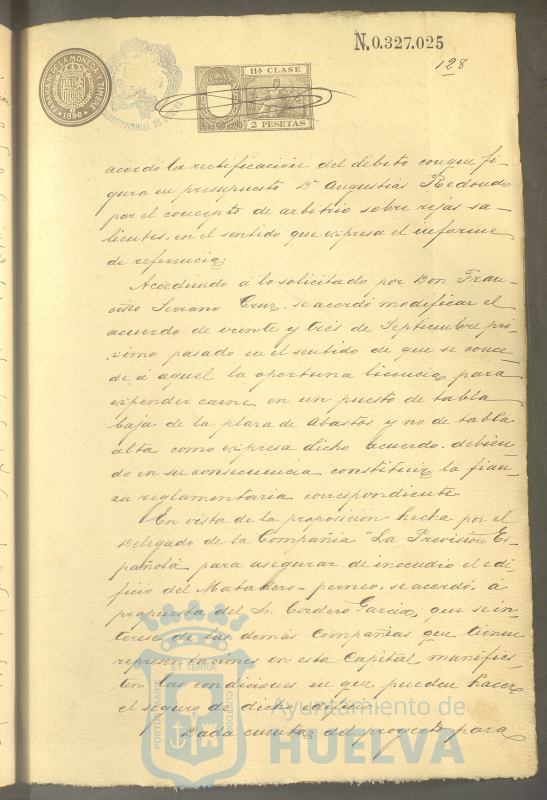 N.0.327.025
128
FABRICA N DE LA MONEDA Y TIMBRE
1896
11ª CLASE
2 PESETAS
acordó la rectificación del débito conque fi-
gura en presupuesto Dª Augustias Redondo
por el concepto de arbitrio sobre rejas sa-
lientes, en el sentido que expresa el informe
de referencia;
Accediendo á lo solicitado por Don Fran-
cisco Serrano Cruz, se acordó modificar el
acuerdo de veinte y tres de Septiembre pró-
ximo pasado en el sentido de que se conce-
de á aquel la oportuna licencia para
expender carne en un puesto de tabla
baja de la plaza de Abastos y no de tabla
alta como expresa dicho acuerdo. debien-
do en su consecuencia constituir la fian-
za reglamentaria correspondiente.
En vista de la proposición hecha por el
Delegado de la Compañia "La Previsión Es-
pañola" para asegurar de incendio el edi-
ficio del Matadero-porcuno, se acordó, á
propuesta del Sr. Cordero García, que se in-
terese de las demás Compañias que tienen
representaciones en esta Capital manifies-
ten las condiciones en que pueden hacer
el seguro de dicho edificio.
Dada cuenta del proyecto para
PORTUS MARIS ET TERRÆ CUSTODIA
Ayuntamiento de
HUELVA